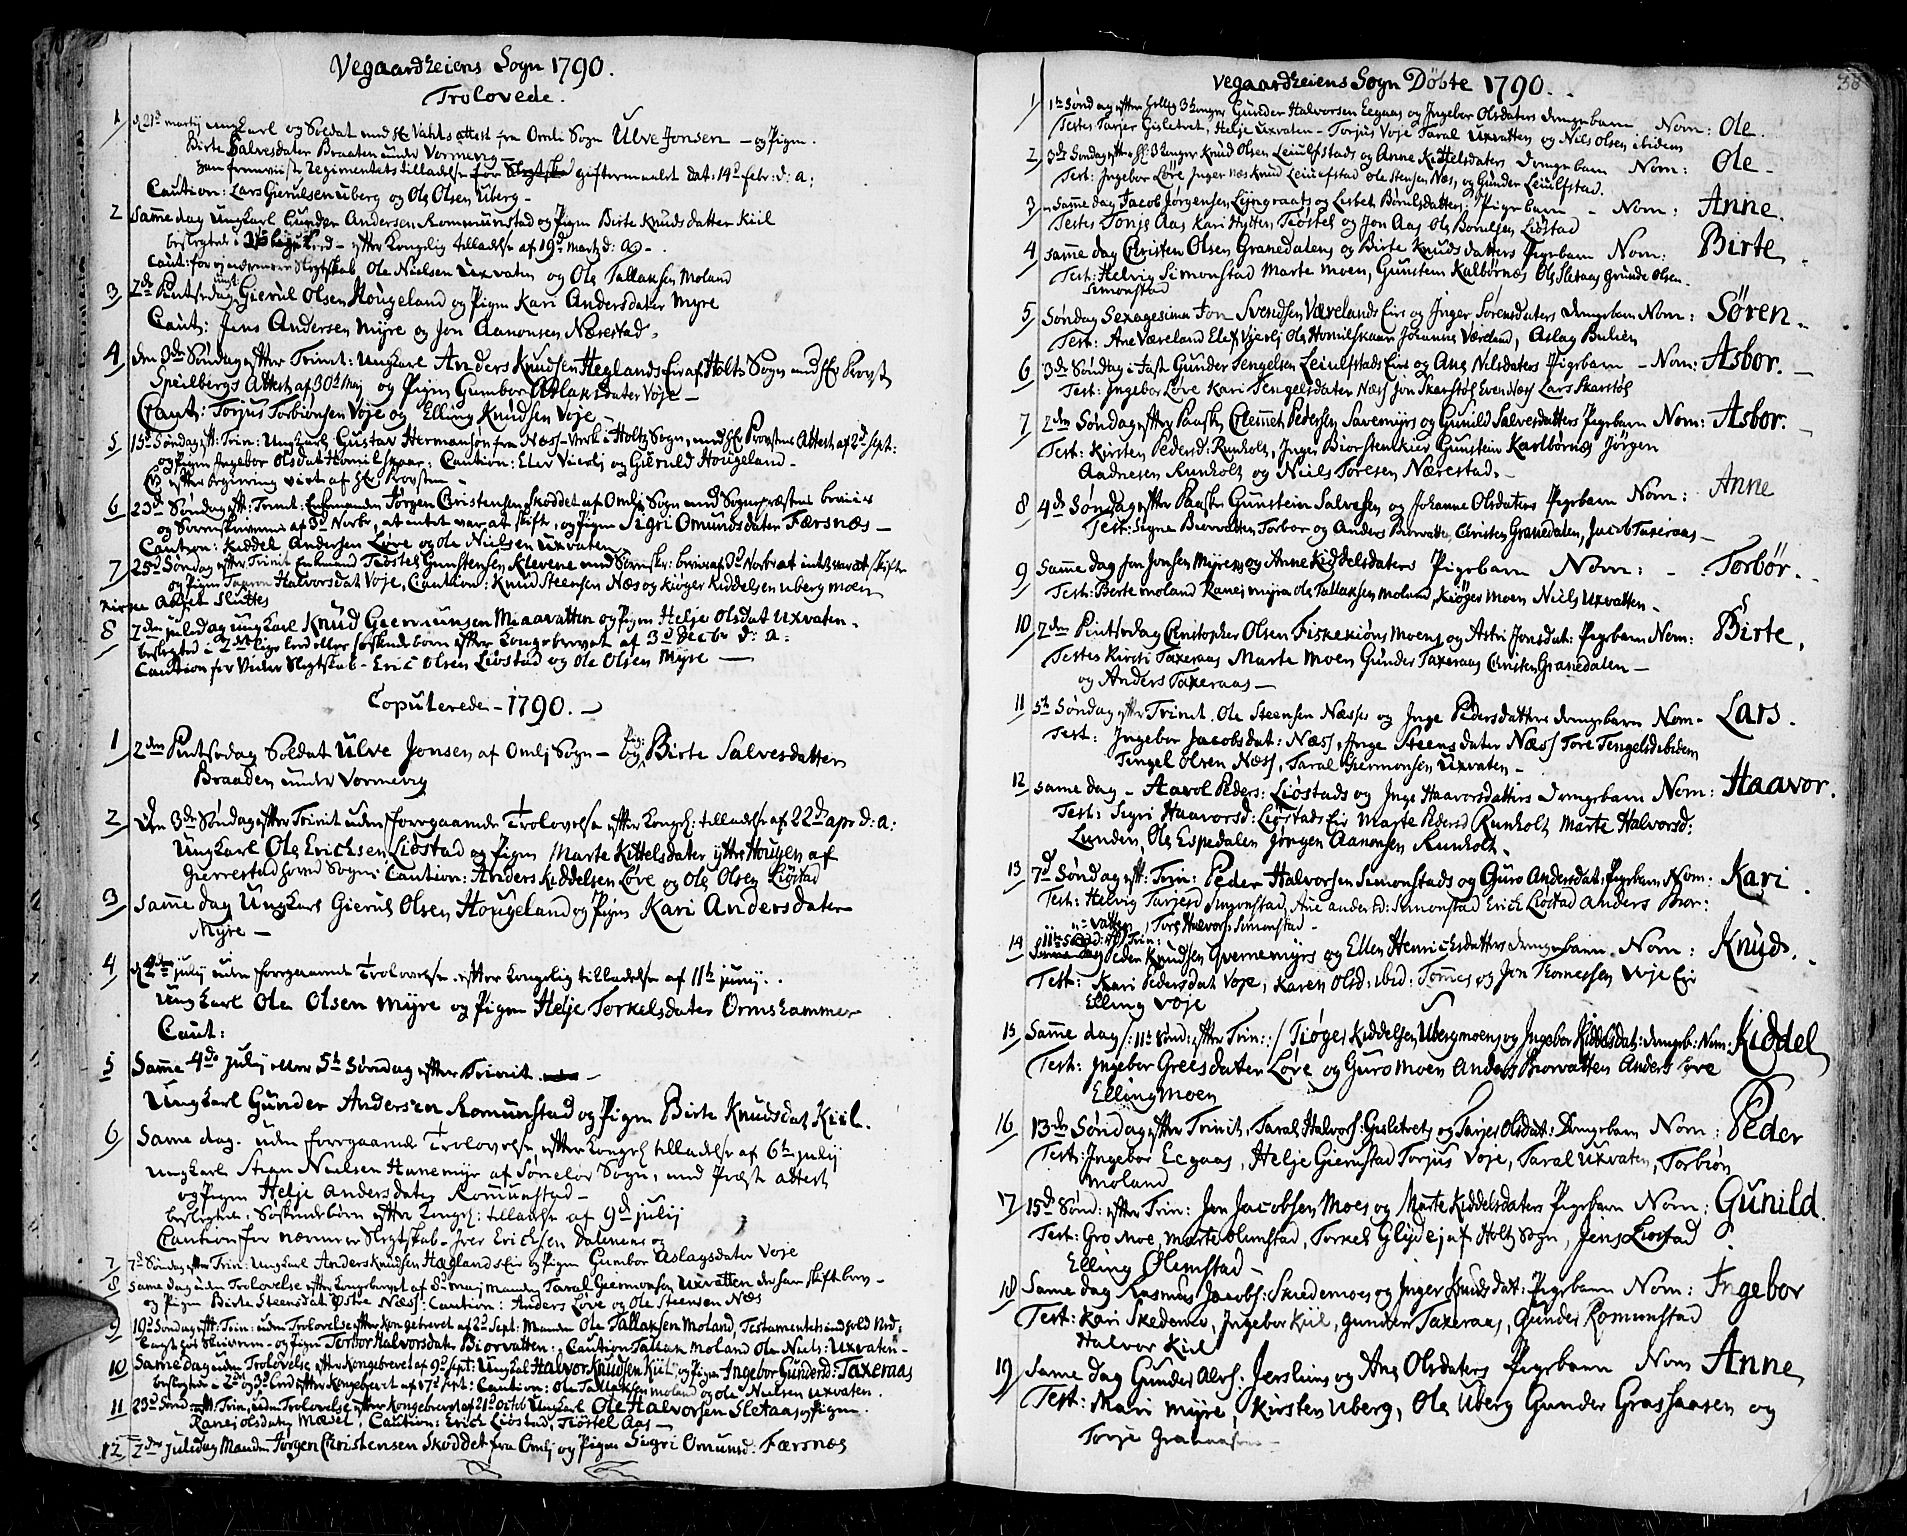 Vegaardheiens Sogn 1790.
Trolovede.
1 d 21de martij ungkarl og Soldat med Hr Vahls attest fra Omli Sogn Ulve Jonsen – og Pigen
Birte Salvesdater Braaten under Vormevig –
Regimentets tilladelse for giftermaalet dat: 14de febr: d: a:
Caution: Lars Gierulsen uberg og Ole Olsen Uberg –
2 Samme dag Ungkarl Gunder Andersen Rommunstad og Pigen Birte Knuds datter Kiil
beslegtet i Leed – efter Kongelig tilladelse af 19de marty d: a –
Caut: for nærmere Slegtskab Ole Nielsen Uxvaten og Ole Tallaksen Moland
3 2den Pintsedag Gierul Olsen Hougeland og Pigen Kari Andersdater Myre
Caut: Jens Andersen Myre og Jon Aanonsen Nærestad.
4 den 3de Søndag efter Trinit: Ungkarl Anders Knudsen Heglands Eie af Holts Sogn med Hr Provst
Speilbergs Attest af 30te Maj og Pigen Gumbor Aslaksdater Voje –
Caut: Torjus Torbiønsen Voje og Elling Knudsen Voje –
5 15de Søndag eft: Trin: Ungkarl Gustav Hermansøn fra Næs-Verk i Holts Sogn, med Hr Provstens Attest af 2de Sept:
og Pigen Ingebor Olsdat Homilskaar: Caution: Elev Vierli og Gieruld Hougeland –
efter begiering viet af Hr Provsten –
6 23de Søndag eft: Trinit: Enkemanden Jørgen Christensen Skoddet af Omli Sogn med Sognepræstens beviis
og Sorenskriverens af 3de Novbr, at intet var at skifte, og Pigen Sigri Omundsdater Færsnæs –
Caution: Kiddel Andersen Løve og Ole Nielsen Uxvaten
7 25de Søndag efter Trinit Enkemand Tiøstel Gunstensen Klevene med Sorenskr: beviis af Novbr at intet var at skifte
og Pigen Taaron Halvorsdat Voje, Caution: Knud Steensen Næs og Kiøger Kiddelsen uberg moen
Kirke Aaret Sluttes
8 2den juledag ungkarl Knud Giermunsen Miaavatten og Pigen Helje Olsdat Uxvaten.
beslegted i 2det lige leed eller søskendebørn efter Kongebrevet af 3de Decbr d: a:
Caution for Videre Slegtskab – Eric Olsen Liøstad og Ole Olsen Myre –
Copulerede – 1790. –
1 2den Pintsedag Soldat Ulve Jonsen af Omli Sogn – og Pig: Birte Salvesdatter
Braaden under Vormevig
2 Den 3de Søndag efter Trinit uden foregaaende Trolovelse efter Kongel: tilladelse af 22de apr: d: a:
Ungkarl Ole Erichsen Liøstad og Pigen Marte Kittelsdater ytre Hougen af
Gierrestad hoved Sogn: Caution: Anders Kiddelsen Løve og Ole Olsen Liøstad
3 samme dag Ungkarl Gierul Olsen Hougeland og Pigen Kari Andersdater
Myre –
4 d 4de july uden foregaaende Trolovelse efter Kongelig tilladelse af 11te junij.
Ungkarl Ole Olsen Myre og Pigen Helje Torkelsdater Ormshammer
Caut:
5 Samme 4de july eller 5te Søndag efter Trinit –
Ungkarl Gunder Andersen Romunstad og Pigen Birte Knudsdat Kiil.
6 Samme dag. uden foregaaende Trolovelse, efter Kongel tilladelse af 6te julij
Ungkarl Stian Nielsen Hanemyr af Sønelov Sogn, med Præste attest
og Pigen Helje Andersdater Romunstad –
beslegtede Søskendebørn efter Kongel: tilladelse af 9de julij
Caution for nærmere Slegtskab – Iver Erichsen Dalenene og
7 7de Søndag efter Trin: Ungkarl Anders Knudsen Hæglands Eie og Pigen Gumbor Aslagsdater Voje
8 samme dag uden Trolovelse efter Kongebrevet af maj manden Taral Giermonsen Uxvatten der har skiftebrev –
og Pigen Birte Steensdat Østre Næss: Caution: Anders Løve og Ole Steensen Næs
9 19de Søndag eft: Trin: uden Trolovelse efter Kongebrevet af 2de Sept: Manden Ole Tallaksen Moland, Testamentets indhold Ved
Skiverm – og Pigen Torbor Halvorsdater Biorvatten: Caution Tallak Moland Ole Niels: Uxvaten –
10 Samme dag uden Trolovelse efter Kongebrevet af 9de Sept: Ungkal Halvor Knudsen Kiil, og Pigen Ingebor Gundersd: Taxeraas
beslegtede i 2det og 3de Leed efter Kongebrevet af 17de Sept: Caution: Ole Tallaksen Moland og Ole Nielsen Uxvaten.
11 23de Sønd eft Trin, uden Trolovelse efter Kongebrevet af 21de Octob Ungkarl Ole Halvorsen Sletaas og Pigen
Ranei olsdater Mædel, Caution: Erick Liøstad, Tiøstel Aas –
12 2den juledag Manden Jørgen Christensen Skoddet fra Omli og Pigen Sigri Omunsd: Færsnæs
38
Vegaardheiens Sogn Døbte 1790.
1 1te Søndag efter hellig 3 Konger Gunder Halvorsen Eegaas og Ingebor Olsdaters drengebarn Nom: Ole.
Testes Tarjer Gisletret, Helje Uxvaten – Torjus Voje Taral Uxvatten og Nils Olsen ibidem
2 3de Søndag efter H: 3 Konger Knud Olsen Leiulfstads og Anne Kittelsdaters Drengebarn Nom: Ole –
Test: Ingebor Løve Inger næs Knud Leiulfstad Ole Stensen Næs, og Gunder Leiulfstad.
3 Samme dag Jacob Jørgensen Liøngvaats og Lisbet Børulsdatters: Pigebarn – Nom: Anne.
Testes Tonje Aas Kari Hytten Tiøstel og Jon Aas Ole Børulsen Liøstad
4 samme dag Christen Olsen Granedalens og Birte Knudsdatters Pigebarn Nom: Birte.
Test: Helvig Simonstad Marte Moen, Gunsten Kalbørnes Ole Sletaas Grunde Olsen
Simonstad
5 Søndag Sexagesima Jon Svendsen Værelands Eie og Inger Sørensdaters drengebarn Nom: Søren.
Test: Ane Væreland Elef Vierli Ole Homilskaar Johannes Væreland, Aslag Bulien
6 3de Søndag i Faste Gunder Tengelsen Leiulfstads Eie og Ane Nilsdaters Pigebarn – Nom: Asbor. –
Test: Ingebor Løve Kari Tengelsdater Næss Jon Skarstøl Even Næss Lars Skarstøl
7 2den Søndag efter Paaske Clemmet Pedersen Savemyrs og Gunild Salvesdatters Pigebarn Nom: Asbor. –
Test: Kirsten Pedersd: Runholt, Inger Biorstenkier Gunstein Karlbørnes Jørgen
Aadnesen Runholt og Niils Toresen Nærestad. –
8 4de Søndag efter Paaske Gunstein Salvesen og Johanne Olsdaters Pigebarn Nom: Anne
Test: Signe Biorvatten Torbor og Anders Biorvatten, Christen Granedalen, Jacob Taxeraas –
9 Samme dag Jon Jonsen Myrens og Anne Kiddelsdaters Pigebarn Nom: – Torbør. –
Test: Berte Moland Ranei Myra Ole Tallaksen Moland, Kiøger Moen Niels Uxvatten –
10 2den Pintsedag Christopher Olsen Fiskekiøns Moens og Astri Jonsdat: Pigebarn Nom: Birte,
Testes Kirsti Taxeraas Marte Moen Gunder Taxeraas Christen Granedalen –
og Anders Taxeraas –
11 5te Søndag efter Trinit. Ole Steensen Næsses og Inge Pedersdatters drengebarn Nom – Lars.
Test: Ingebor Jacobsdat: Næss, Inge Steensdater Næss Tore Tengelsd: ibidem
Tengel Olsen Næss, Taral Giermonsen Uxvaten –
12 samme dag – Aavol Peders: Liøstads og Inge Haavorsdatters Drengebarn Nom: Haavor.
Test: Sigri Haavorsd: Liøstads Eie Marte Pedersd Runholt Marte Halvorsd:
Lunden, Ole Espedalen Jørgen Aanonsen Runholt.
13 7de Søndag eft: Trin: Peder Halvorsen Simonstads og Guro Andersdat: Pigebarn Nom: Kari.
Test: Helvig Tarjesd Simonstad, Ane Andersd: Simonstad Erich Liøstad Anders Bior:
vatten, Tore Halvors: Simonstad –
14 11te Sønd: eft Trin: Peder Knudsen Grernemyrs og Ellen Henrichsdatters drengebarn Nom: Knud.
Test: Kari Pedersdat Voje, Karen Olsd: ibid: Tommes og Jon Thomessen Voje Eie
Elling Voje
15 Samme dag /: 11te Sønd: efter Trin: :/ Tiøger Kiddelsen Ubergmoens og Ingebor Kiddelsdat: drengeb: Nom: Kiddel
Test: Ingebor Greesdater Løve og Guro Moen Anders Biorvatten Anders Løve
Elling Moen
16 13de Søndag efter Trinit, Taral Halvors: Gisletrets og Tarjer Olsdat: Drengebarn Nom: Peder
Test: Ingebor Eegaas, Helje Gierustad Torjus Voje, Taral Uxvaten, Torbiøn
Moland
17 15de Sønd: efter Trin: Jon Jacobsen Moes og Marte Kiddelsdaters Pigebarn Nom: Gunild.
Test: Gro Moe, Marte Olimstad, Torkel Glydej af Holts Sogn, Jens Liøstad
Elling Olemstad –
18 Samme dag Rasmus Jacobs: Skiedemoes og Inger Knudsdat: Pigebarn Nom: Ingebor
Test: Kari Skedemo, Ingebor Kiil, Gunder Taxeraas, Gunder Romunstad
Halvor Kiil
19 Samme dag Gunder Alvs: Jersliens og Ane Olsdaters Pigebarn Nom Anne
Test: Mari Myre, Kirsten Uberg, Ole Uberg Gunder Grashaasen og
Torje